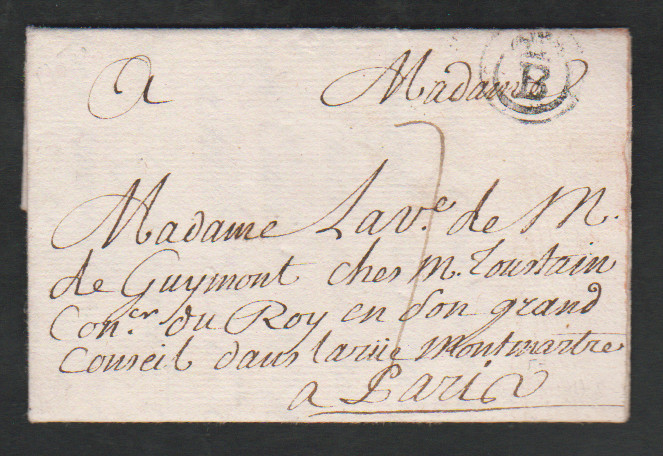 A Madame
B
7
Madame Lav.e de M.
de Guymont ches M. Toustain
Con.er du Roy en son grand
Conseil dans la rüe Montmartre
a Paris